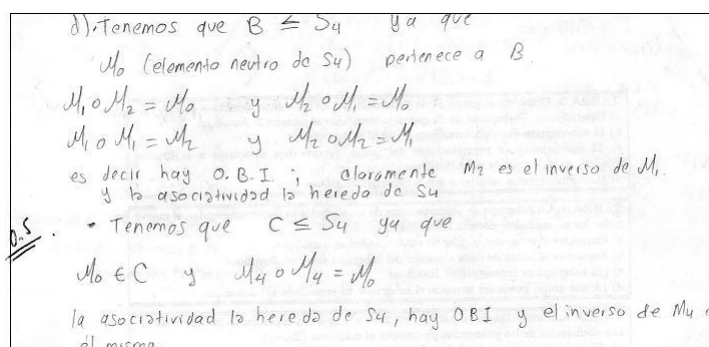 d). Tenemos que B ≤ S4 ya que
M0 (elemento neutro de S4) pertenece a B.
M1 o M2 = M0 y M2 o M1 = M0
M1 o M1 = M2 y M2 o M2 = M1
es decir hay O.B.I ; claramente M2 es el inverso de M1.
y la asociatividad la hereda de S4
0.5 · Tenemos que C ≤ S4 ya que
M0 ∈ C y M4 o M4 = M0
la asociatividad la hereda de S4, hay OBI y el inverso de M4 e
él mismo